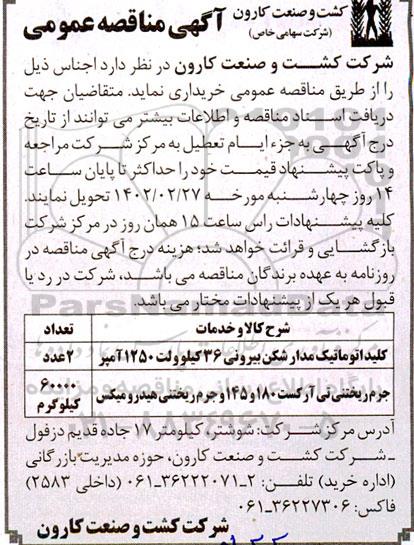 کشت و صنعت کارون
(شرکت سهامی خاص)
آگهی مناقصه عمومی
شرکت کشت و صنعت کارون در نظر دارد اجناس ذیل
را از طریق مناقصه عمومی خریداری نماید. متقاضیان جهت
دریافت اسناد مناقصه و اطلاعات بیشتر می توانند از تاریخ
درج آگهی به جزء ایام تعطیل به مرکز شرکت مراجعه
و پاکت پیشنهاد قیمت خود را حداکثر تا پایان ساعت
۱۴ روز چهارشنبه مورخه ۱۴۰۲/۰۲/۲۷ تحویل نمایند.
کلیه پیشنهادات راس ساعت ۱۵ همان روز در مرکز شرکت
بازگشایی و قرائت خواهد شد؛ هزینه درج آگهی مناقصه در
روزنامه به عهده برندگان مناقصه می باشد، شرکت در رد یا
قبول هر یک از پیشنهادات مختار می باشد.
شرح کالا و خدمات تعداد
کلید اتوماتیک مدار شکن بیرونی ۳۶ کیلو ولت ۱۲۵۰ آمپر ۲ عدد
جرم ریختنی تی آر کست ۱۸۰ و ۱۴۵ و جرم ریختنی هیدرو میکس ۶۰۰۰۰ کیلوگرم
آدرس مرکز شرکت: شوشتر، کیلومتر ۱۷ جاده قدیم دزفول
ـ شرکت کشت و صنعت کارون، حوزه مدیریت بازرگانی
(اداره خرید) تلفن: ۲ـ۳۶۲۲۲۰۷۱ـ۰۶۱ (داخلی ۲۵۸۳)
فاکس: ۳۶۲۲۷۳۰۶ـ۰۶۱
شرکت کشت و صنعت کارون